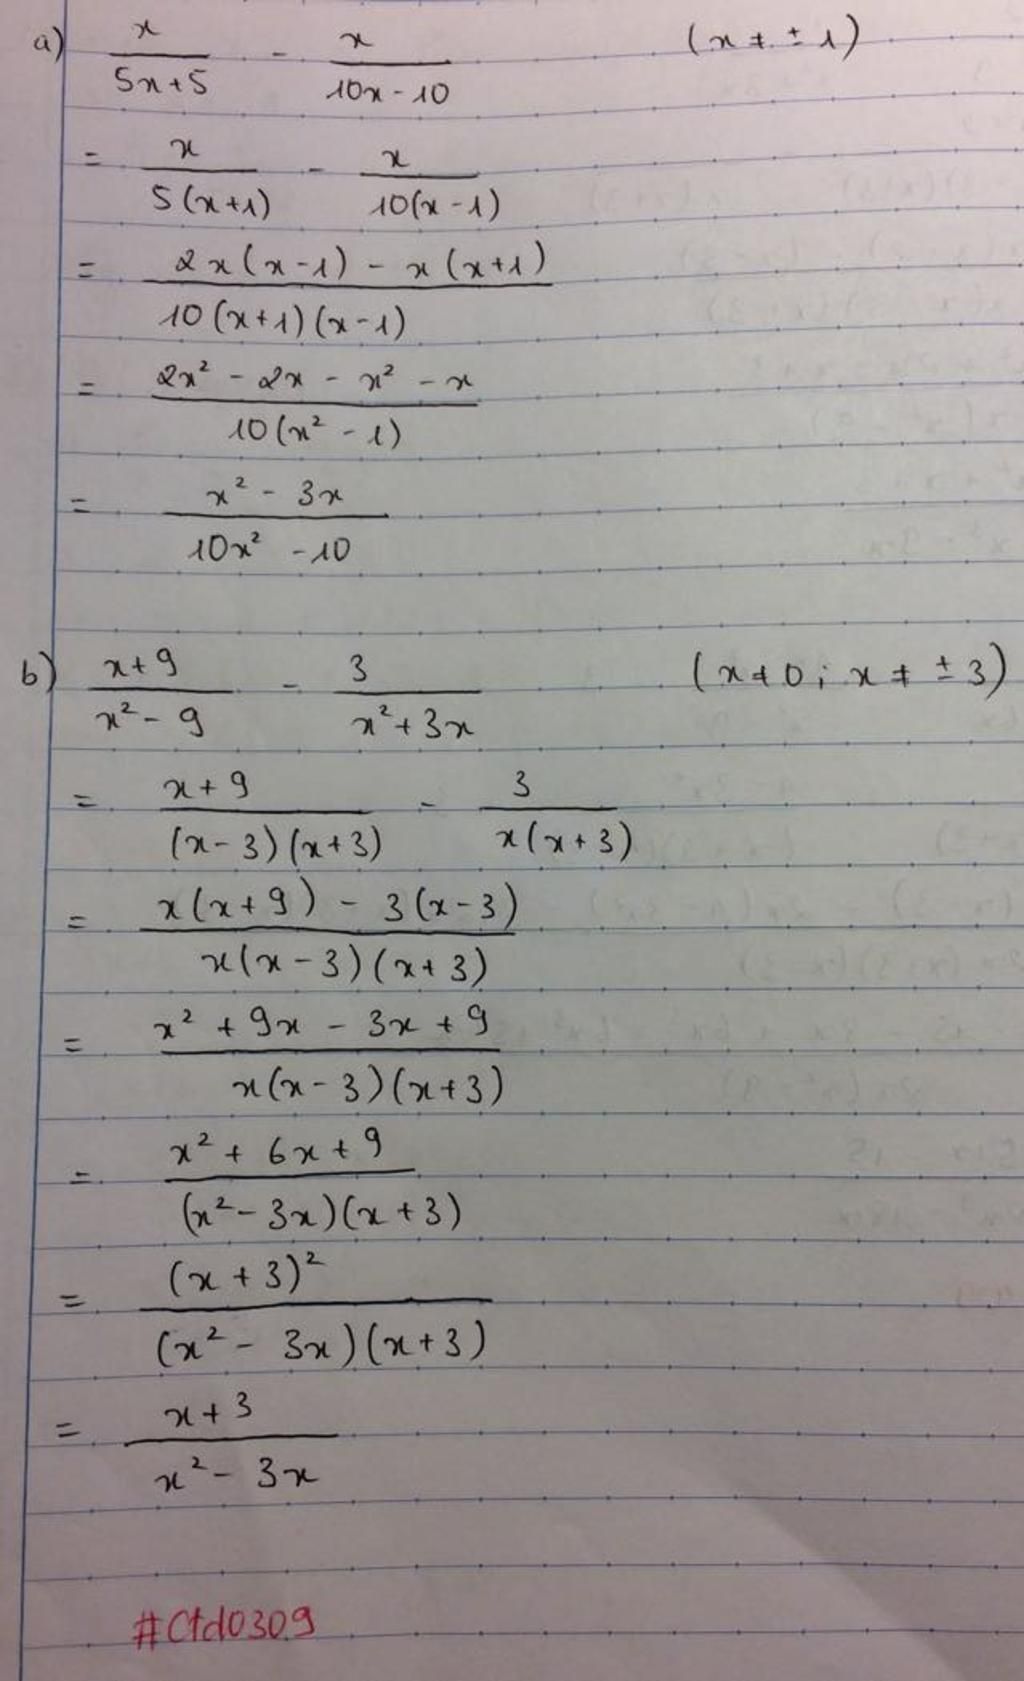 a) x/(5x+5) - x/(10x-10) (x ≠ ±1)
= x/(5(x+1)) - x/(10(x-1))
= (2x(x-1) - x(x+1))/(10(x+1)(x-1))
= (2x² - 2x - x² - x)/(10(x² - 1))
= (x² - 3x)/(10x² - 10)
b) (x+9)/(x² - 9) - 3/(x² + 3x) (x ≠ 0; x ≠ ±3)
= (x+9)/((x-3)(x+3)) - 3/(x(x+3))
= (x(x+9) - 3(x-3))/(x(x-3)(x+3))
= (x² + 9x - 3x + 9)/(x(x-3)(x+3))
= (x² + 6x + 9)/((x² - 3x)(x+3))
= (x+3)²/((x² - 3x)(x+3))
= (x+3)/(x² - 3x)
#Ctd0309